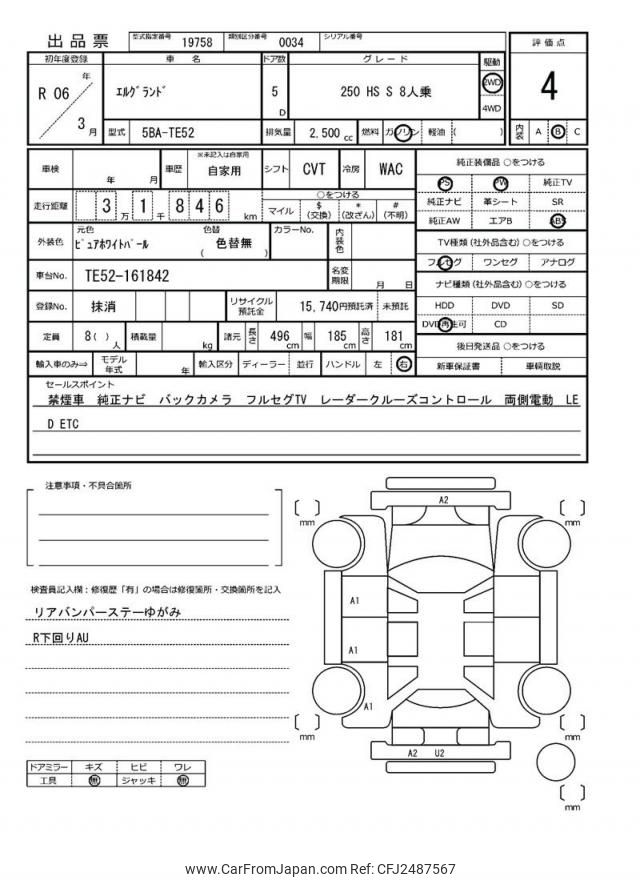 出品票 型式指定番号 19758 類別区分番号 0034 シリアル番号
初年度登録 車名 ドア数 グレード 駆動 評価点
R 06 年 3 月 ｴﾙｸﾞﾗﾝﾄﾞ 5 D 250 HS S 8人乗 2WD 4WD 4
型式 5BA-TE52 排気量 2,500 cc 燃料 ガソリン 軽油 ( ) 内装 A B C
車検 年 月 車歴 ※未記入は自家用 自家用 シフト CVT 冷房 WAC
走行距離 3 万 1 千 8 4 6 km ○をつける
マイル $(交換) *(改ざん) #(不明)
外装色 元色 ﾋﾟｭｱﾎﾜｲﾄﾊﾟｰﾙ 色替 ( 色替無 ) カラーNo. 内装色
車台No. TE52-161842 名変期限 月 日
登録No. 抹消 リサイクル預託金 15,740円預託済 未預託
定員 8( ) 人 積載量 kg 諸元 長さ 496 cm 幅 185 cm 高さ 181 cm
輸入車のみ⇒ モデル年式 年 輸入区分 ディーラー 並行 ハンドル 左 右
純正装備品 ○をつける
PS PW 純正TV
純正ナビ 革シート SR
純正AW エアB ABS
TV種類 (社外品含む) ○をつける
フルセグ ワンセグ アナログ
ナビ種類 (社外品含む) ○をつける
HDD DVD SD
DVD再生可 CD
後日発送品 ○をつける
新車保証書 車輌取説
セールスポイント
禁煙車 純正ナビ バックカメラ フルセグTV レーダークルーズコントロール 両側電動 LE
D ETC
注意事項・不具合箇所
検査員記入欄：修復歴「有」の場合は修復箇所・交換箇所を記入
リアバンパーステーゆがみ
R下回りAU
ドアミラー キズ ヒビ ワレ
工具 無 ジャッキ 無
A2
[ ] mm
[ ] mm
A1
A1
A1
[ ] mm
[ ] mm
A2 U2
[ ] mm
www.CarFromJapan.com Ref: CFJ2487567